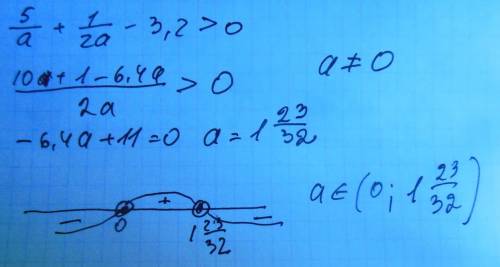 5/a + 1/2a − 3,2 > 0
a ≠ 0
(10 + 1 − 6,4a)/2a > 0
− 6,4a + 11 = 0   a = 1 23/32
− + −
0   1 23/32
a ∈ (0; 1 23/32)